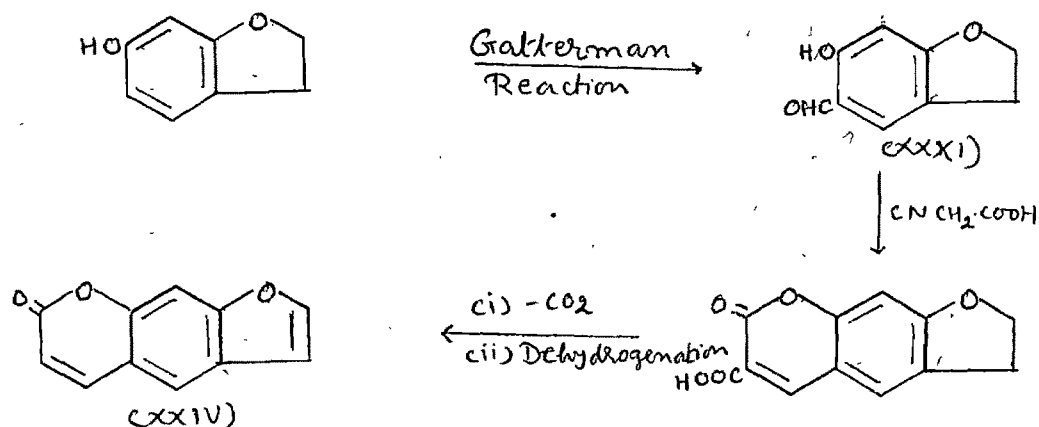 HO O
Gatterman
Reaction
HO O
OHC
(XXXI)
CNCH2.COOH
O O O
(i) -CO2
(ii) Dehydrogenation
(XXIV)
O O O
HOOC